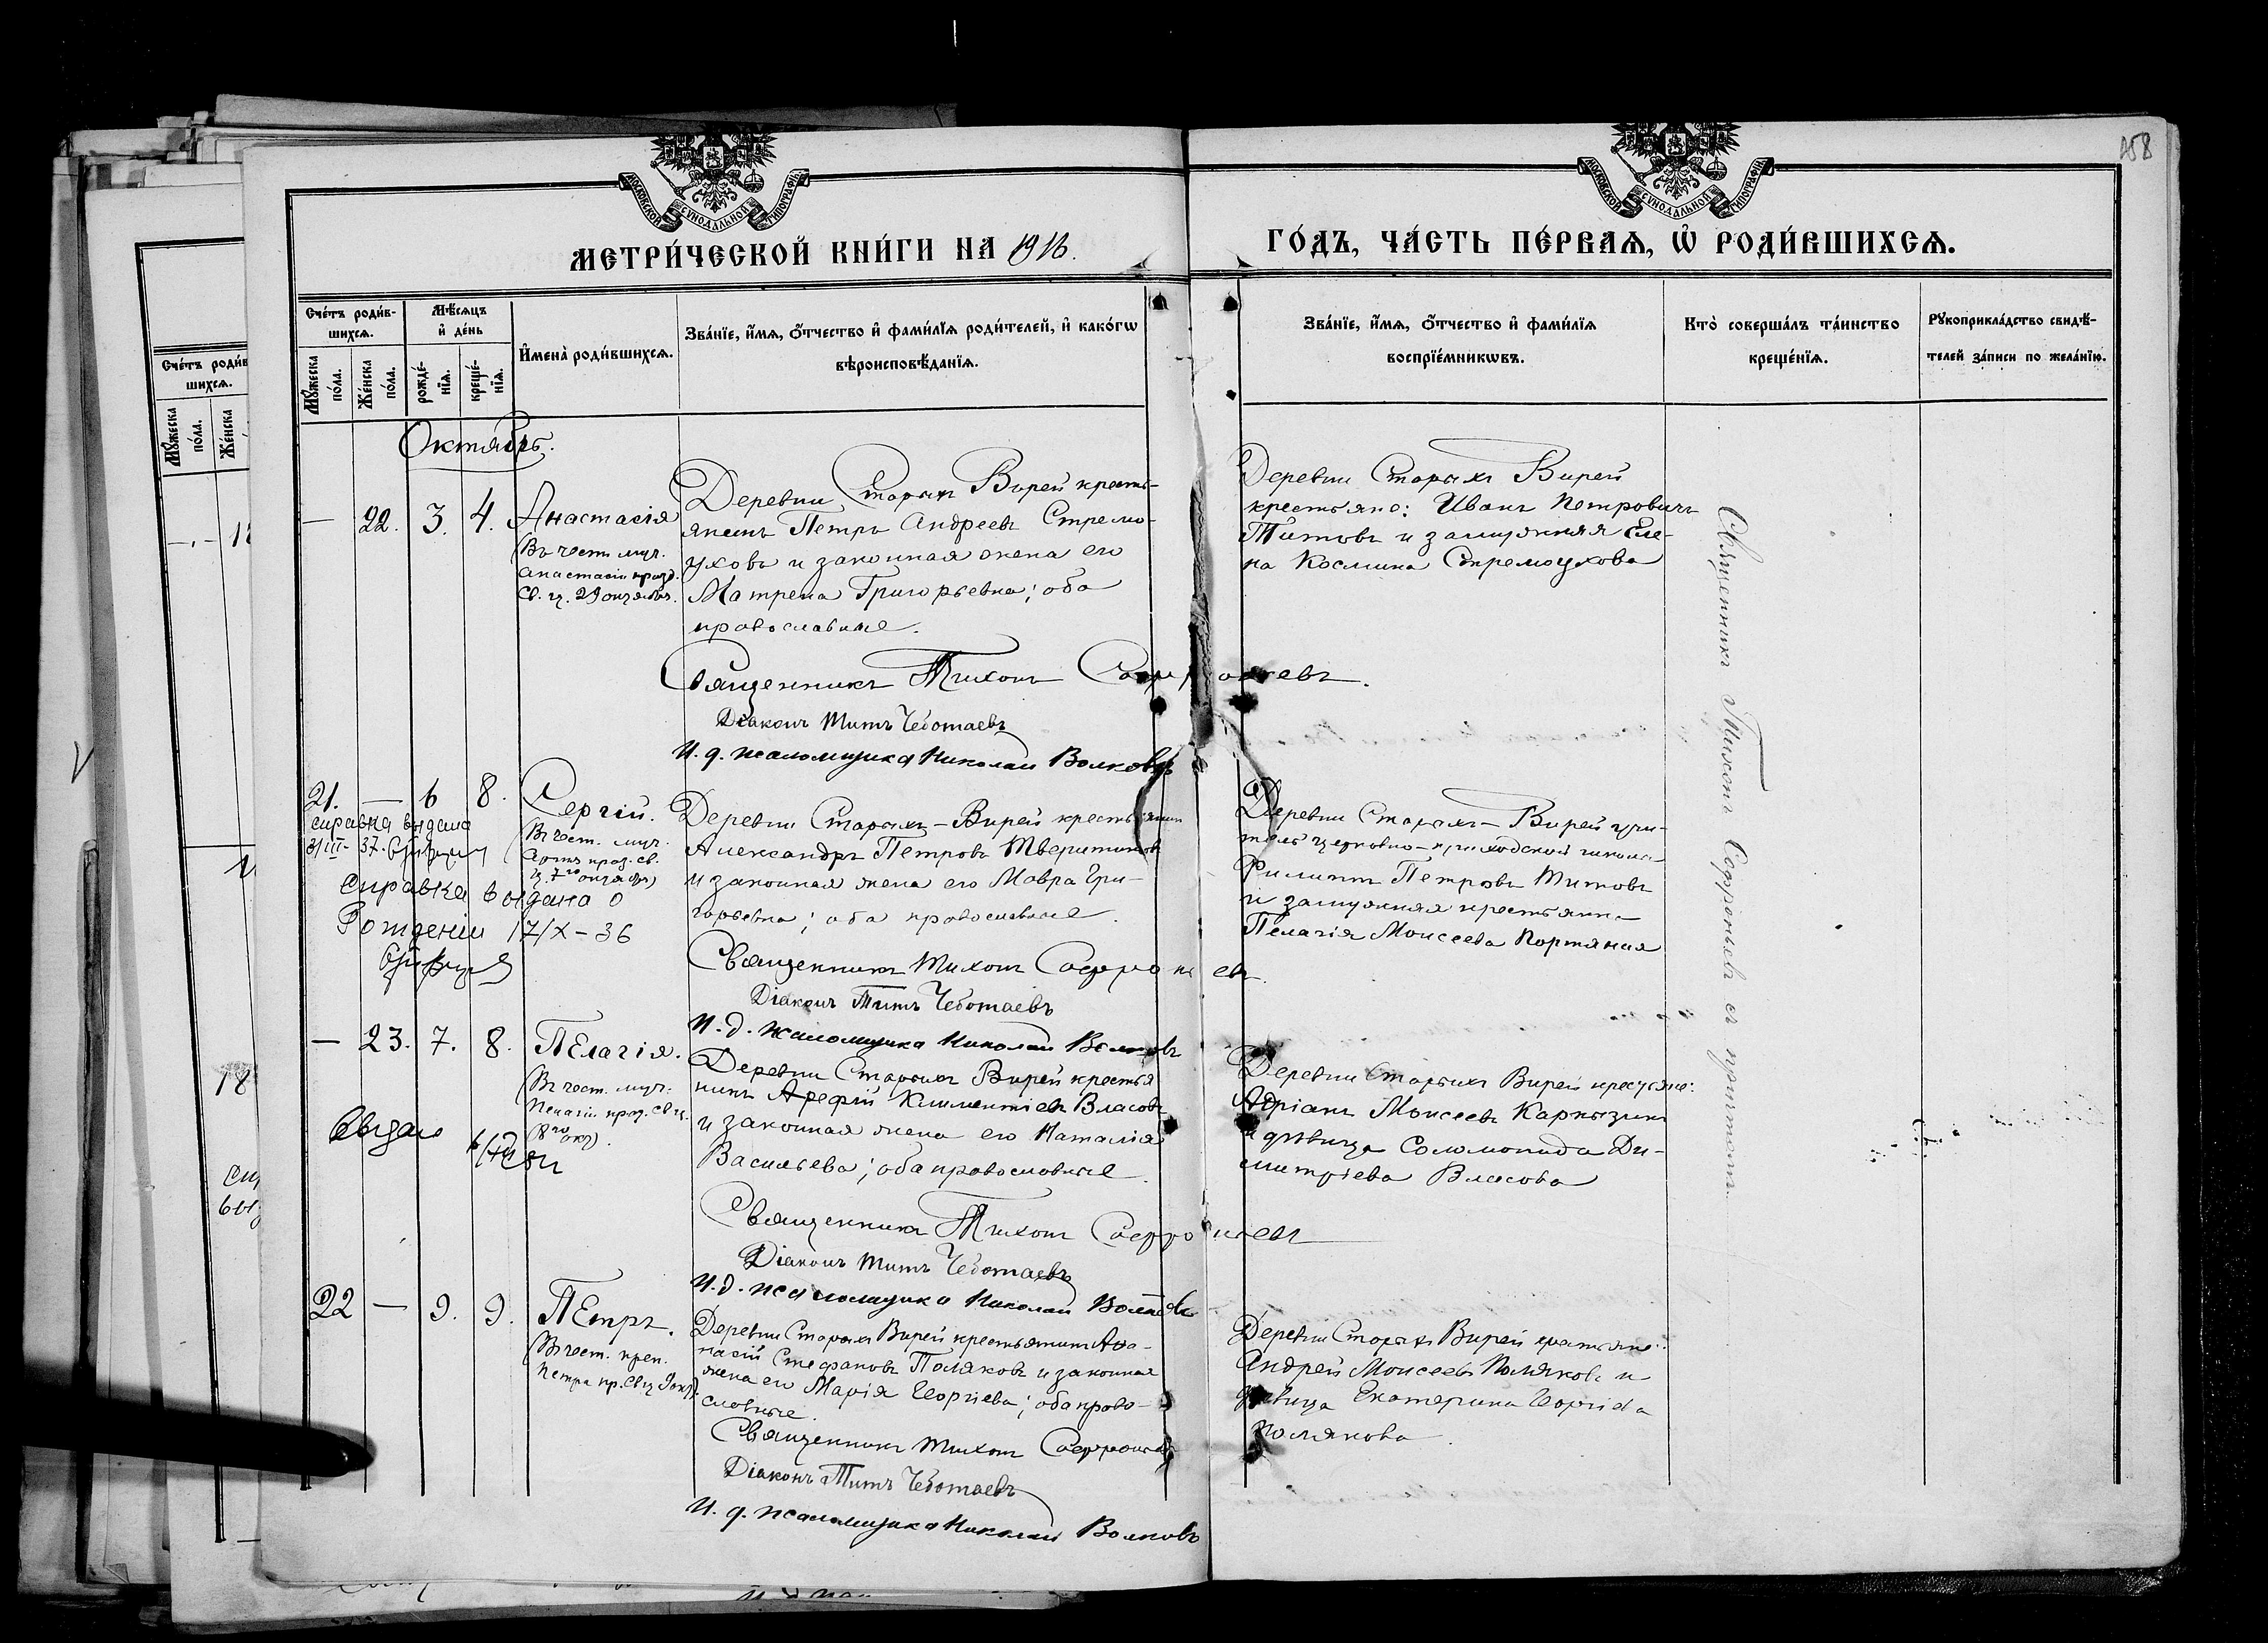 158
МОСКОВСКОЙ СѴНОДАЛЬНОЙ ТИПОГРАФІИ
МОСКОВСКОЙ СѴНОДАЛЬНОЙ ТИПОГРАФІИ
МЕТРИ́ЧЕСКОЙ КНИ́ГИ НА 1916.
ГО́ДЪ, ЧА́СТЬ ПЕ́РВАѦ, Ѡ РОДИ́ВШИХСѦ.
Сче́тъ роди́в-
шихсѧ.
Мꙋ́жеска
по́ла.
Же́нска
по́ла.
Мѣ́сѧцъ
и҆ де́нь
рожде́-
нїѧ.
креще́-
нїѧ.
И҆мена̀ роди́вшихсѧ.
Зва́нїе, и҆́мѧ, ѻ҆́тчество и҆ фами́лїѧ роди́телей, и҆ како́гѡ
вѣроисповѣ́данїѧ.
Зва́нїе, и҆́мѧ, ѻ҆́тчество и҆ фами́лїѧ
воспрїе́мникѡвъ.
Кто̀ соверша́лъ та́инство
креще́нїѧ.
Рꙋкоприкла́дство свидѣ́-
телей за́писи по жела́нїю.
Сче́тъ роди́в
шихсѧ.
Мꙋ́жеска
по́ла.
Же́нска
Октябрь.
— 22. 3. 4. Анастасія
(Въ чест. муч.
Анастасіи празд.
Св. ц. 29 октября.
Деревни Старыхъ Вирей кресть-
янинъ Петръ Андреевъ Стремо-
уховъ и законная жена его
Матрена Григорьевна; оба
православные.
Священникъ Тихонъ Софроньевъ.
Діаконъ Титъ Чеботаевъ
И. д. псаломщика Николай Волковъ
Деревни Старыхъ Вирей
крестьяне: Иванъ Петровичъ
Титовъ и замужняя Еле-
на Космина Стремоухова
Священникъ Тихонъ Софроньевъ съ причтомъ.
21. — 6 8. Сергій.
(Въ чест. муч.
празд. св.
ц. 7го октября)
справка выдана
3/III-37.
Справка выдана о
Рождении 17/X-36
Деревни Старыхъ-Вирей крестьянинъ
Александръ Петровъ Тверитиновъ
и законная жена его Мавра Гри-
горьевна; оба православные.
Священникъ Тихонъ Софроньевъ.
Діаконъ Титъ Чеботаевъ
И. д. псаломщика Николай Волковъ
Деревни Старыхъ-Вирей учи-
тель церковно-приходской школы
Филиппъ Петровъ Титовъ
и замужняя крестьянка
Пелагія Моисеева
— 23. 7. 8. Пелагія.
(Въ чест. муч.
Пелагіи праз. св ц.
(8го окт).
Выдан
Деревни Старыхъ Вирей крестья
нинъ Арефій Климентіевъ Власовъ
и законная жена его Наталія
Васильева; оба православные.
Священникъ Тихонъ Софроньевъ
Діаконъ Титъ Чеботаевъ
И. д. псаломщика Николай Волковъ
Деревни Старыхъ Вирей крестьяне:
Адріанъ Моисеевъ Карпызинъ
и дѣвица Соломонида Ди-
митріева Власова
22 — 9. 9. Петръ.
(Въ чест. преп.
Петра пр. св ц 9 окт).
Деревни Старыхъ Вирей крестьянинъ Аѳа-
насій Стефановъ Поляковъ и законная
жена его Марія Георгіева; оба право-
славные.
Священникъ Тихонъ Софроньевъ
Діаконъ Титъ Чеботаевъ
И. д. псаломщика Николай Волковъ
Деревни Старыхъ Вирей крестьяне:
Андрей Моисеевъ Поляковъ и
дѣвица Екатерина Георгіева
Полякова.